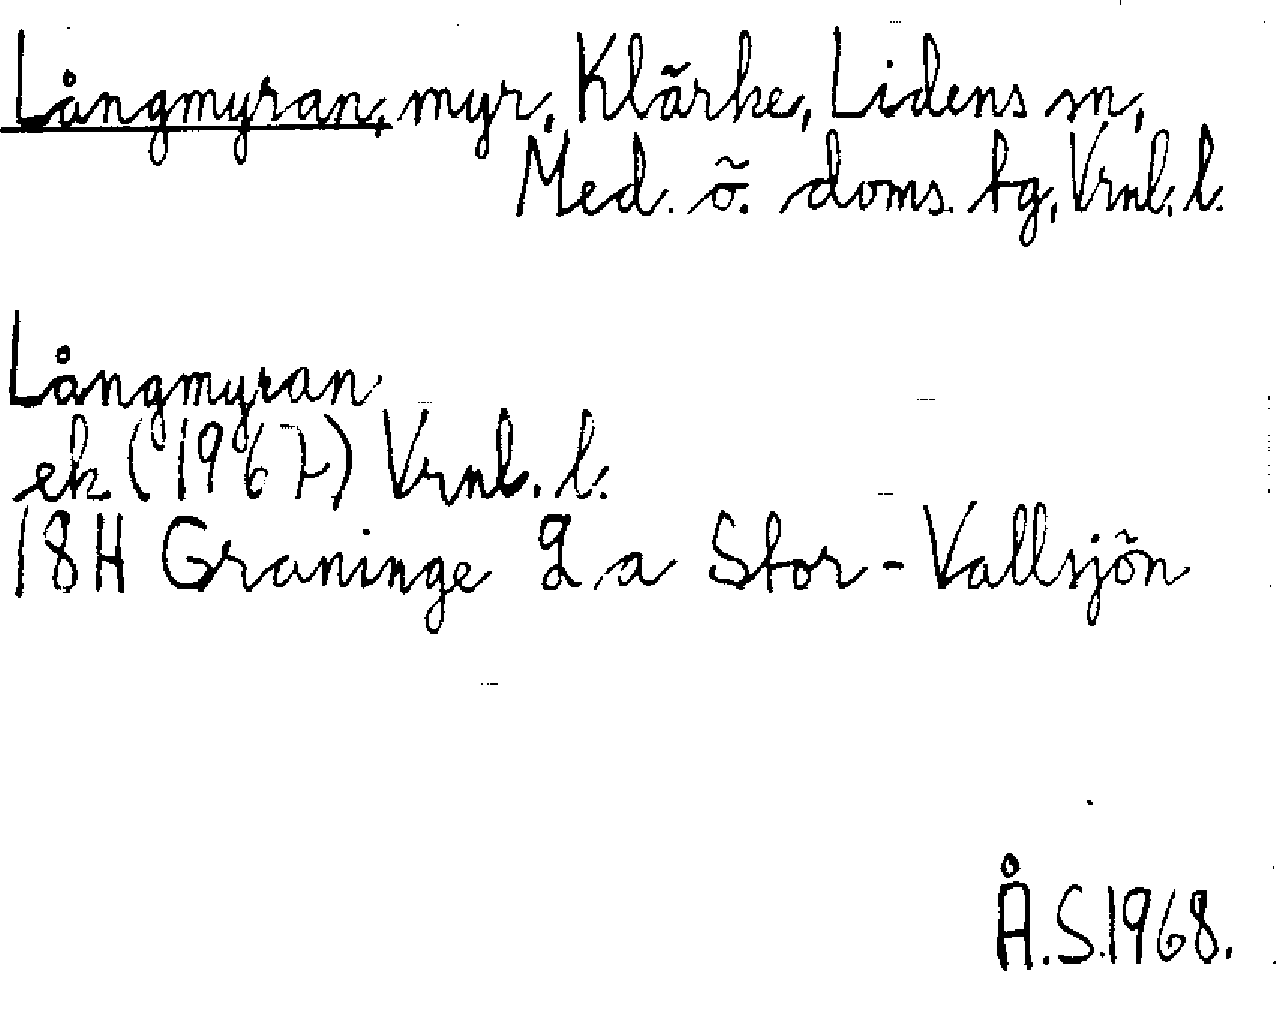 Långmyran, myr, Klärke, Lidens sn,
Med. ö. doms. tg, Vrnl. l.
Långmyran
ek (1967) Vrnl. l.
18H Graninge 2 a Stor-Vallsjön
Å.S.1968.